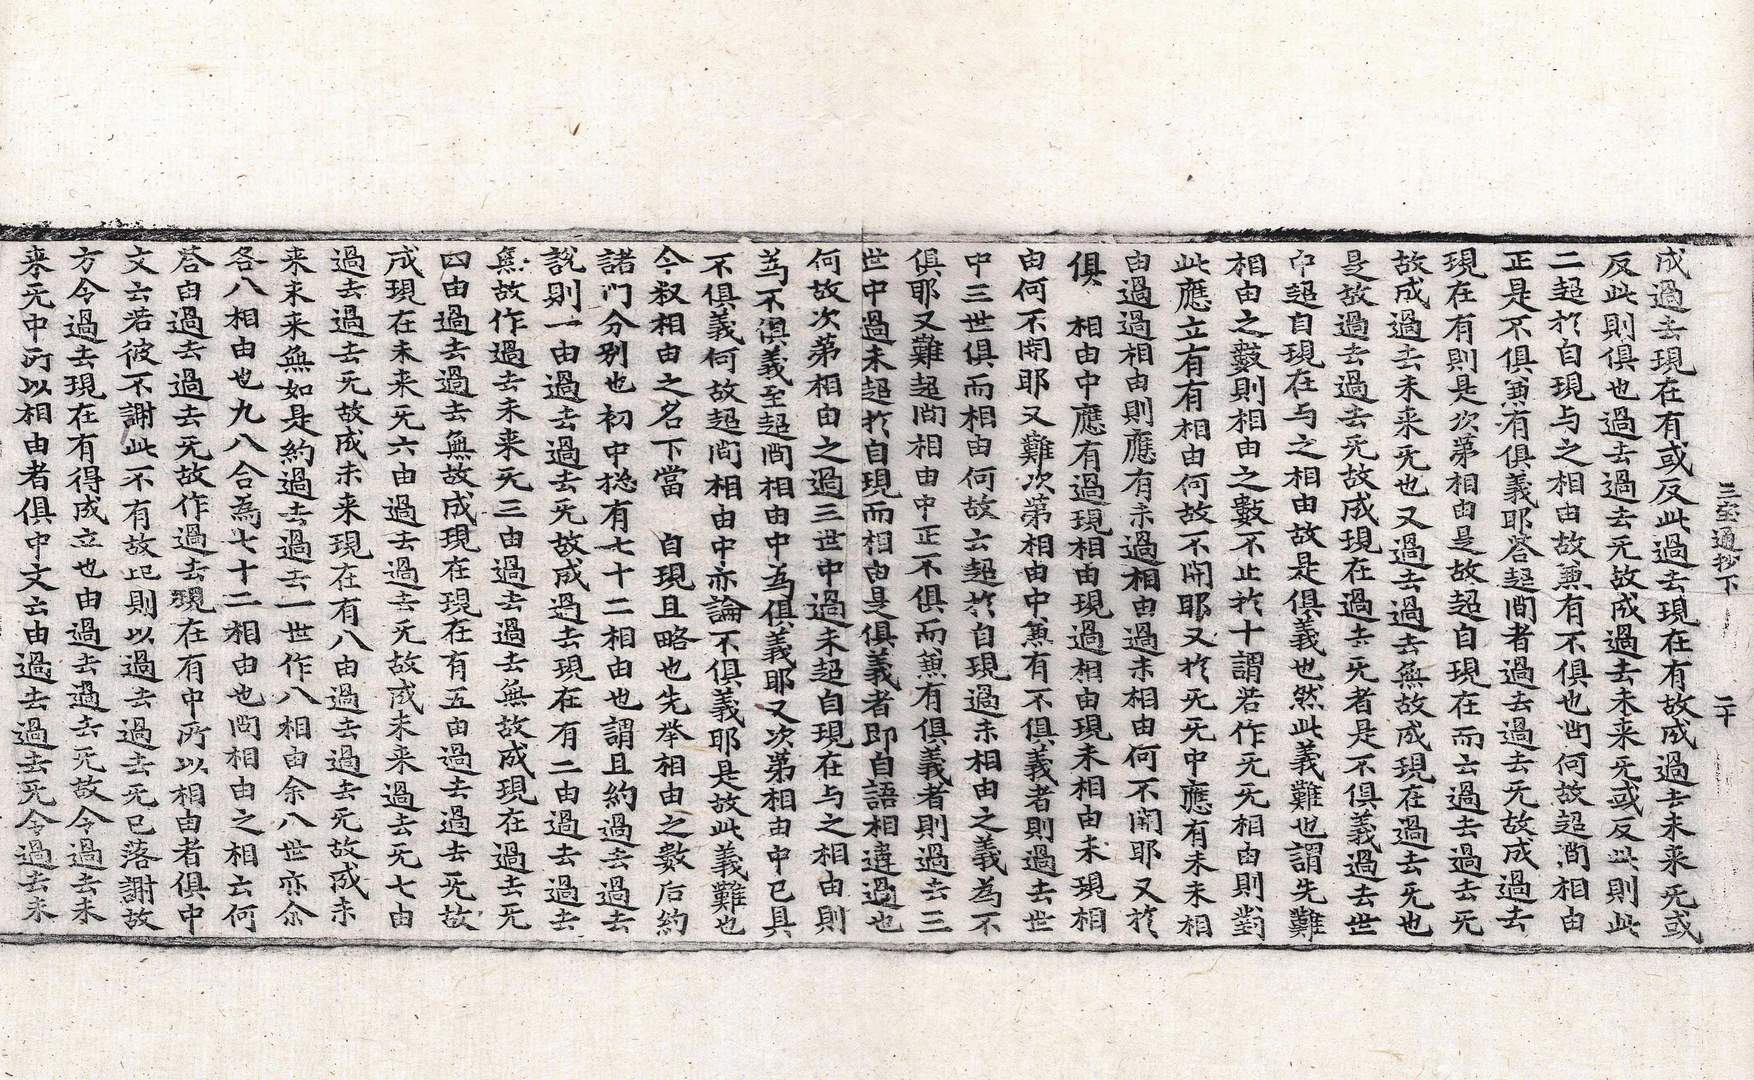 三宝通抄下　二十
成過去現在有或反此過去現在有故成過去未来旡或
反此則俱也過去過去旡故成過去未来旡或反此則此
二超於自現与之相由故兼有不俱也問何故超間相由
正是不俱兼有俱義耶答超間者過去過去旡故成過去
現在有則是次第相由是故超自現在而云過去過去旡
故成過去未来旡也又過去過去無故成現在過去旡也
是故過去過去旡故成現在過去旡者是不俱義過去世
中超自現在与之相由故是俱義也然此義難也謂先難
相由之數則相由之數不止於十謂若作旡旡相由則對
此應立有有相由何故不開耶又於旡旡中應有未未相
由過過相由則應有未過相由過未相由何不開耶又於
俱　相由中應有過現相由現過相由現未相由未現相
由何不開耶又難次第相由中兼有不俱義者則過去世
中三世俱而相由何故云超於自現過未相由之義為不
俱耶又難超間相由中正不俱而兼有俱義者則過去三
世中過未超於自現而相由是俱義者即自語相違過也
何故次第相由之過三世中過未超自現在与之相由則
為不俱義至超間相由中為俱義耶又次第相由中已具
不俱義何故超間相由中亦論不俱義耶是故此義難也
今叙相由之名下當　自現且略也先举相由之數后約
諸門分別也初中揔有七十二相由也謂且約過去過去
說則一由過去過去旡故成過去現在有二由過去過去
無故作過去未来旡三由過去過去無故成現在過去旡
四由過去過去無故成現在現在有五由過去過去旡故
成現在未来旡六由過去過去旡故成未来過去旡七由
過去過去旡故成未来現在有八由過去過去旡故成未
来未来無如是約過去過去一世作八相由余八世亦尒
各八相由也九八合為七十二相由也問相由之相云何
答由過去過去旡故作過去現在有中所以相由者俱中
文云若彼不謝此不有故記則以過去過去旡已落謝故
方令過去現在有得成立也由過去過去旡故令過去未
来旡中所以相由者俱中文云由過去過去旡令過去未